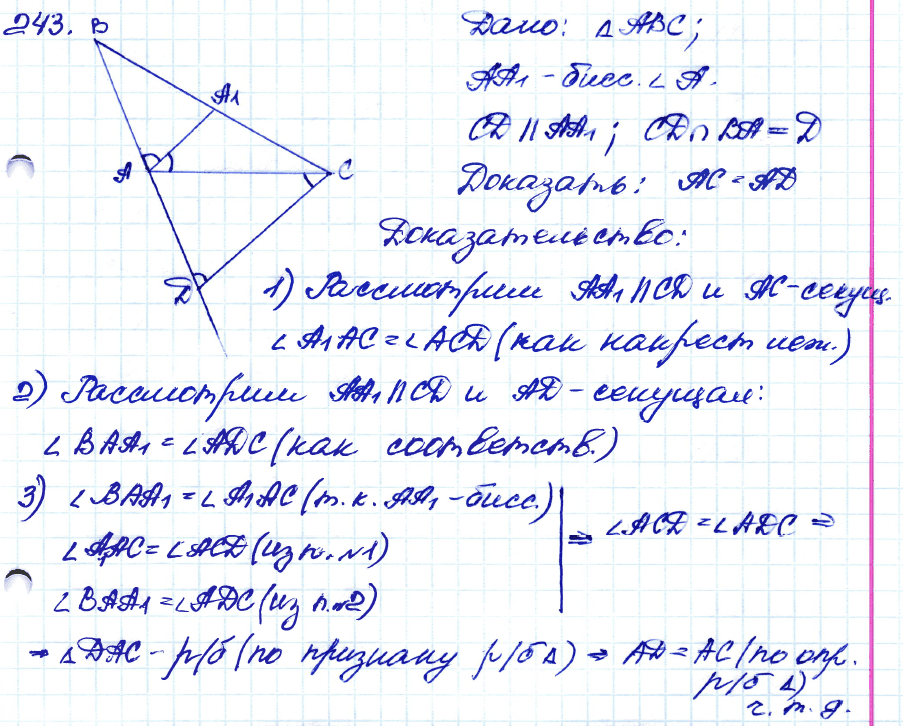 243.
B
A1
A
C
D
Дано: △ABC;
AA1 - бисс. ∠A.
CD || AA1; CD ∩ BA = D
Доказать: AC = AD
Доказательство:
1) Рассмотрим AA1 || CD и AC-секущ.
∠A1AC = ∠ACD (как накрест леж.)
2) Рассмотрим AA1 || CD и AD-секущая:
∠BAA1 = ∠ADC (как соответств.)
3) ∠BAA1 = ∠A1AC (т.к. AA1 - бисс.)
∠A1AC = ∠ACD (из п. №1)
∠BAA1 = ∠ADC (из п. №2)
⇒ ∠ACD = ∠ADC ⇒
⇒ △DAC - р/б (по признаку р/б △) ⇒ AD = AC (по опр.
р/б △)
ч. т. д.